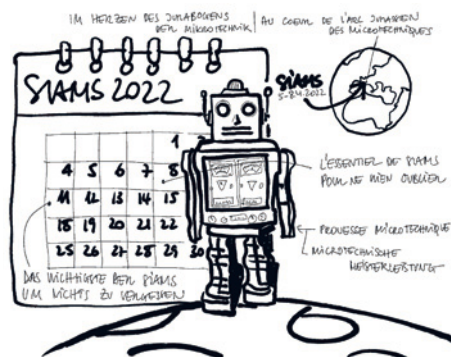 IM HERZEN DES JURABOGENS
DER MIKROTECHNIK
AU COEUR DE L'ARC JURASSIEN
DES MICROTECHNIQUES
SIAMS 2022
SIAMS
5-8.4.2022
1 2
4 5 6 7 8
11 12 13 14 15
18 19 20 21 22
25 26 27 28 29 30
L'ESSENTIEL DE SIAMS
POUR NE RIEN OUBLIER
PROUESSE MICROTECHNIQUE
MICROTECHNISCHE
MEISTERLEISTUNG
DAS WICHTIGSTE DER SIAMS
UM NICHTS ZU VERGESSEN